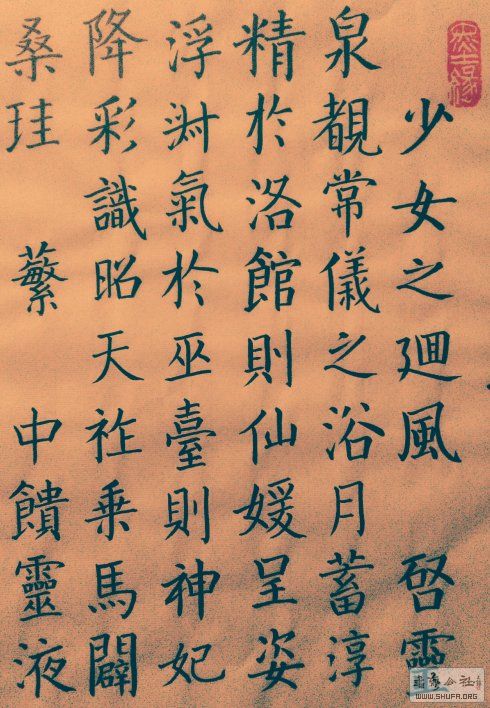 少女之廻風 啓靈
泉覩常儀之浴月蓄淳
精於洛館則仙媛呈姿
浮淑氣於巫臺則神妃
降彩識昭天祚乗馬闢
桑珪 蘩 中饋靈液
WWW.SHUFA.ORG